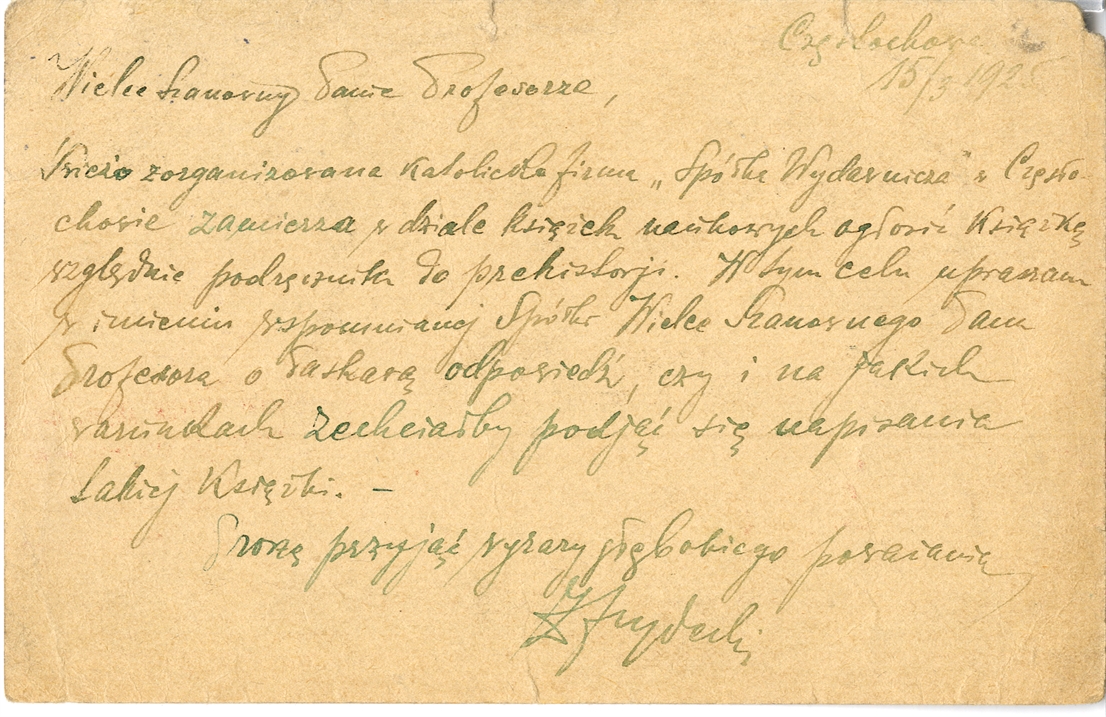 Częstochowa
15/3 192
Wielce Szanowny Panie Profesorze,
Świeżo zorganizowana katolicka firma „Spółka Wydawnicza" w Często-
chowie zamierza w dziale książek naukowych ogłosić książkę
względnie podręcznik do prehistorji. W tym celu upraszam
w imieniu wspomnianej Spółki Wielce Szanownego Pana
Profesora o łaskawą odpowiedź, czy i na jakich
warunkach zechciałby podjąć się napisania
takiej książki. –
Proszę przyjąć wyrazy głębokiego poważania